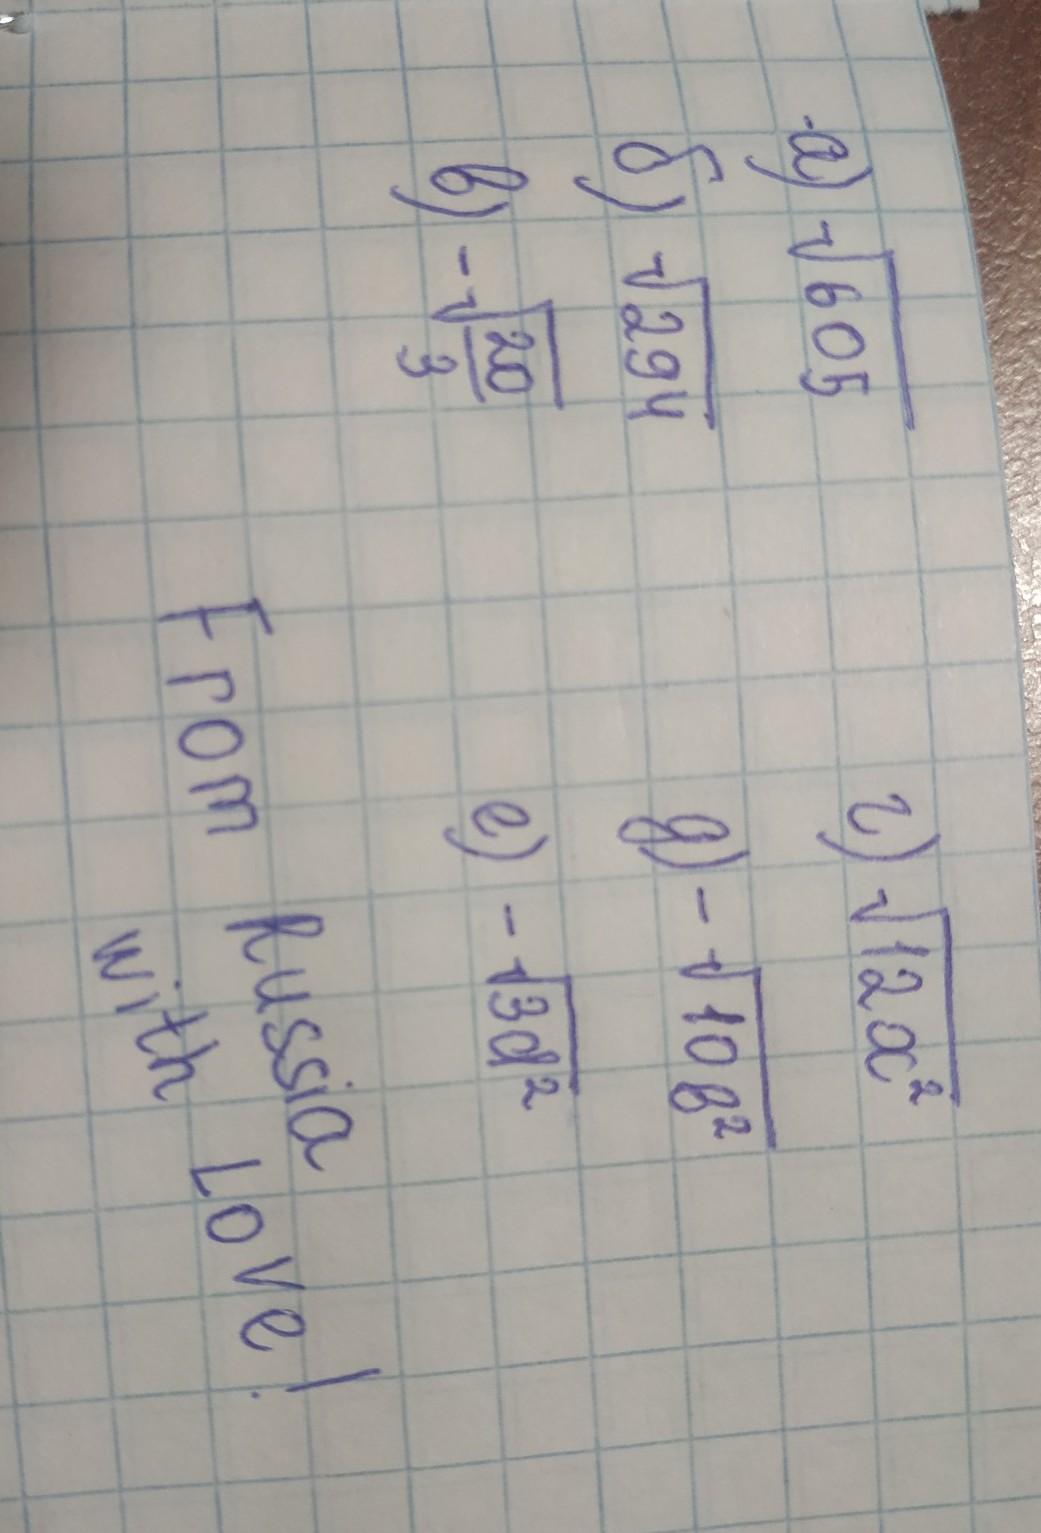 а) √605
б) √294
в) -√20/3
г) √12x²
д) -√10b²
е) -√3d²
From Russia
with Love!